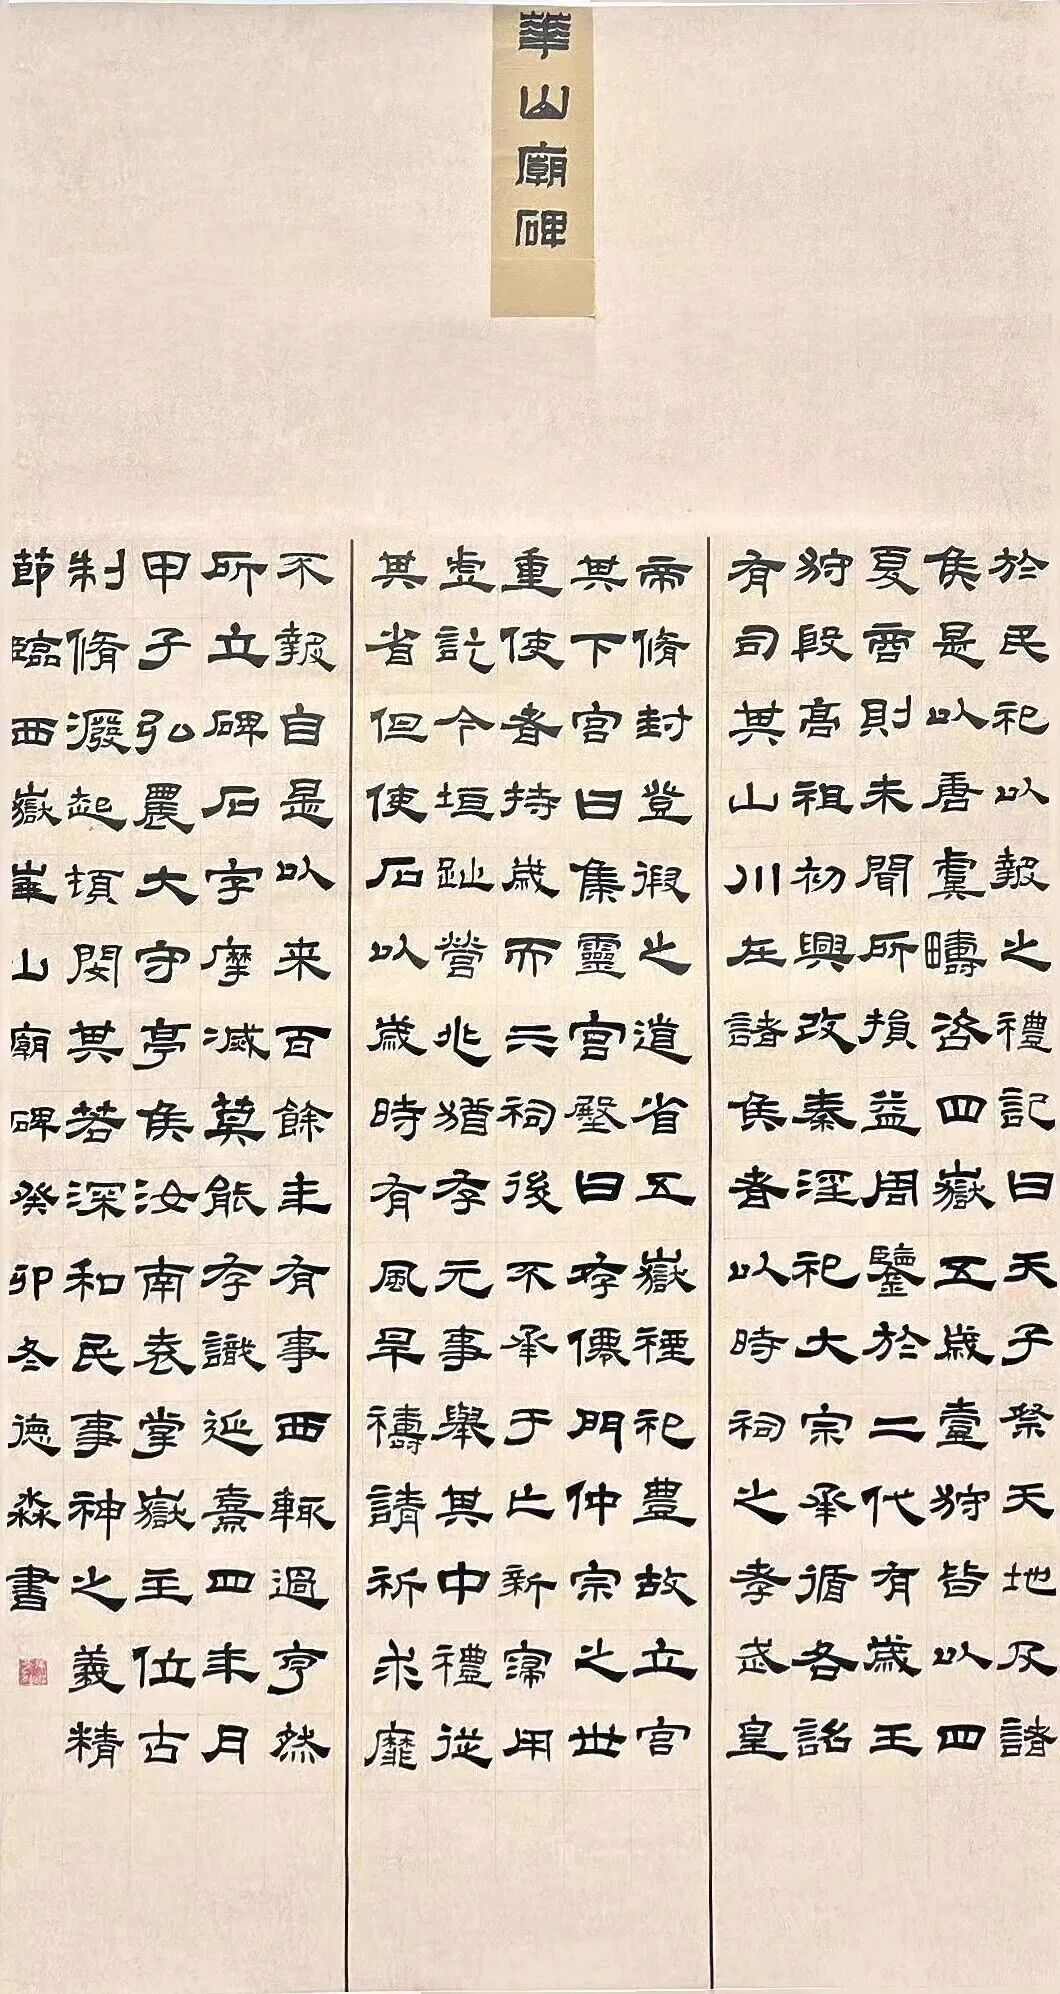 華山廟碑
於民祀以報之禮記曰天子祭天地及諸
侯是以唐虞疇咨四嶽五歲壹狩皆以四
夏商則未聞所損益周鑒於二代有歲王
狩段高祖初興改秦淫祀大宗承循各詔
有司其山川在諸侯者以時祠之孝武皇
帝脩封登徦之道省五嶽禋祀豊故立宮
其下宮曰集靈宮壂曰存僊門仲宗之世
重使者持歲而三祠後不承于亡新寖用
虛訖今垣趾營兆猶存元事舉其中禮從
其省但使石以歲時有風旱禱請祈求靡
不報自是以来百餘年有事西輒過亨然
所立碑石字摩滅莫能存識延熹四年月
甲子弘農大守亭侯汝南袁掌嶽主位古
制脩癈起頓閔其若深和民事神之義精
節臨西嶽崋山廟碑癸卯冬德淼書